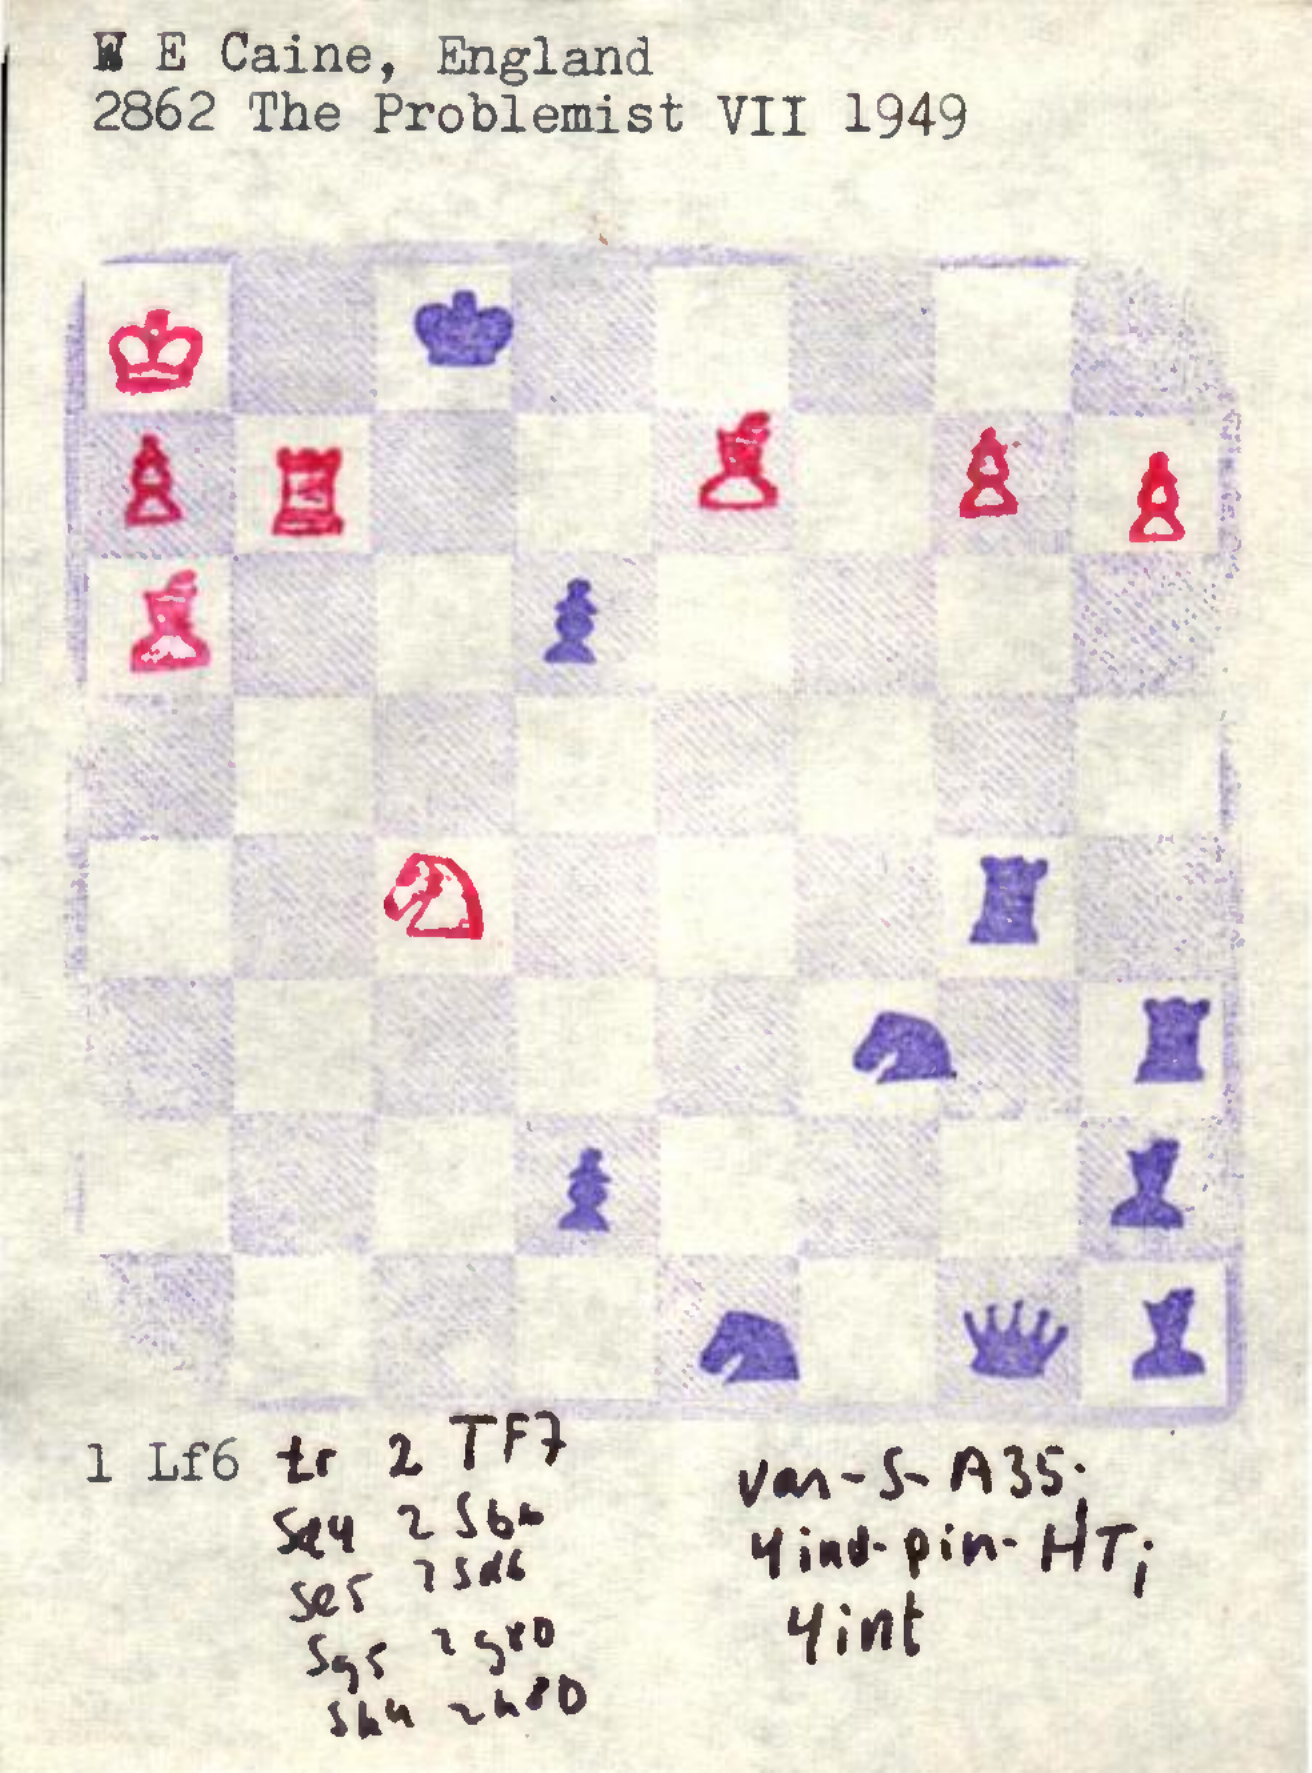 W E Caine, England
2862 The Problemist VII 1949
1 Lf6 tr 2 TF7
Sd4 2 Sb6
Se5 2 Sd6
Sg5 2 g8D
Sh4 2 h8D
van-S-A35;
4ind-pin-HT;
4int